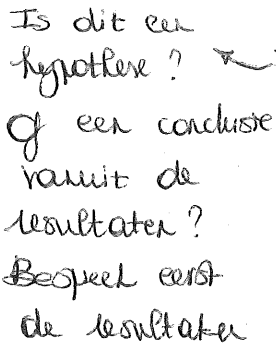 Is dit een
hypothese?
Of een conclusie
vanuit de
resultaten?
Bespreek eerst
de resultaten